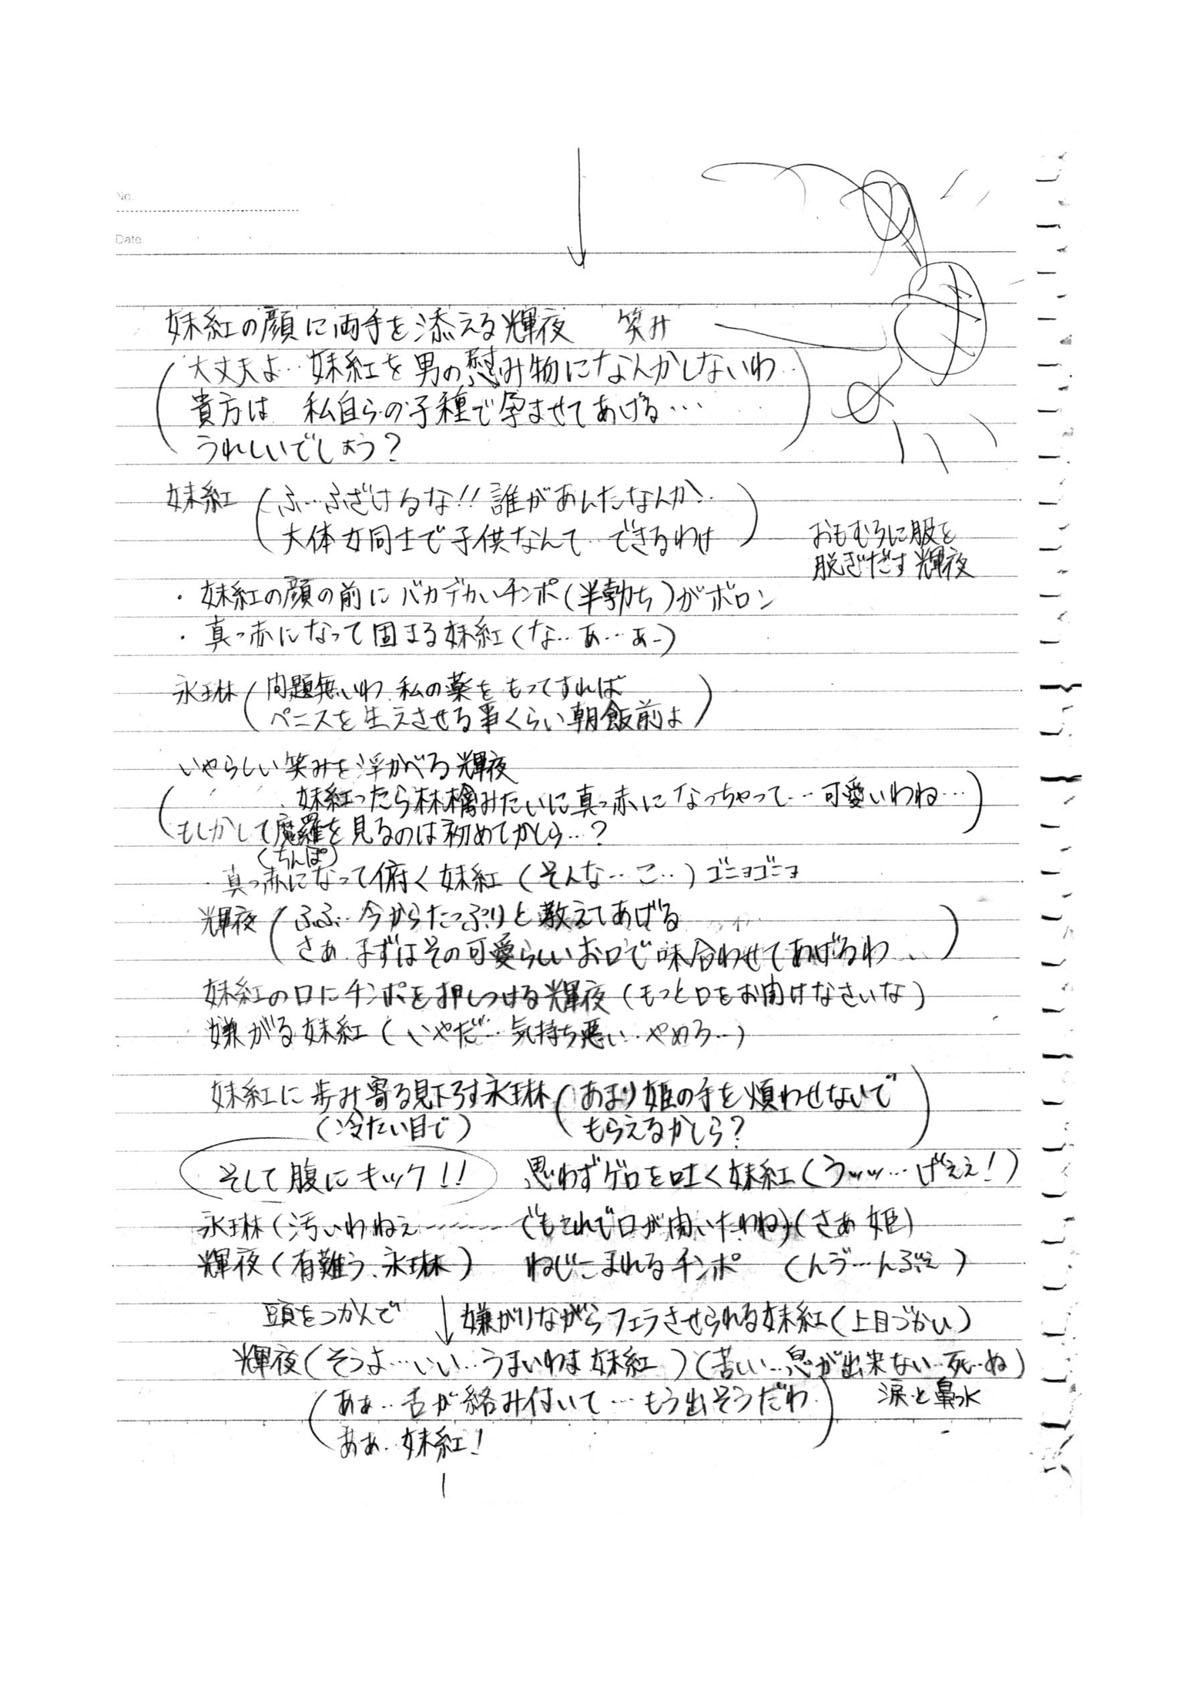 No.
Date
妹紅の顔に両手を添える輝夜 笑み
(大丈夫よ…妹紅を男の慰み物になんかしないわ…
貴方は 私自らの子種で孕ませてあげる…
うれしいでしょう?)
妹紅(ふ…ふざけるな!!誰があんたなんか…
大体女同士で子供なんて…できるわけ)
おもむろに服を
脱ぎだす輝夜
・妹紅の顔の前にバカデカいチンポ(半勃ち)がボロン
・真っ赤になって固まる妹紅(な…あ…あ…)
永琳(問題無いわ.私の薬をもってすれば
ペニスを生えさせる事くらい朝飯前よ)
いやらしい笑みを浮かべる輝夜
(妹紅ったら林檎みたいに真っ赤になっちゃって…可愛いわね…
もしかして魔羅を見るのは初めてかしら…?)
(ちんぽ)
・真っ赤になって俯く妹紅(そんな…こ…)ゴニョゴニョ
輝夜(ふふ…今からたっぷりと教えてあげる
さあ.まずはその可愛らしいお口で味合わせてあげるわ…)
妹紅の口にチンポを押しつける輝夜(もっと口をお開けなさいな)
嫌がる妹紅(いやだ…気持ち悪い…やめろ…)
妹紅に歩み寄る見下ろす永琳(あまり姫の手を煩わせないで
(冷たい目で) もらえるかしら?)
そして腹にキック!! 思わずゲロを吐く妹紅(うッッ…げえぇ!)
永琳(汚いわねぇ……でもこれで口が開いたわね)(さあ 姫)
輝夜(有難う、永琳) ねじこまれるチンポ (んう゛…んぶぇ)
頭をつかんで ↓ 嫌がりながらフェラさせられる妹紅(上目づかい)
輝夜(そうよ…いい…うまいわぁ妹紅)(苦しい…息が出来ない…死…ぬ)
(あぁ…舌が絡み付いて…もう出そうだわ 涙と鼻水
あぁ…妹紅!)